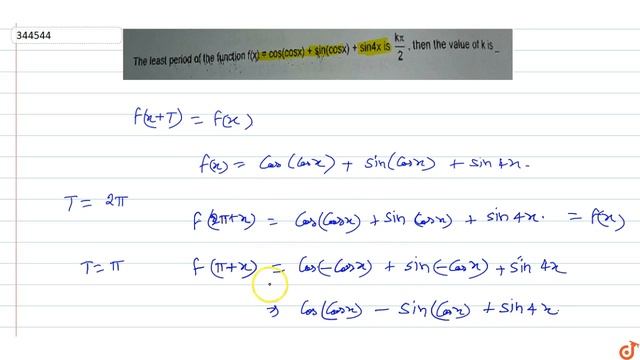 344544
The least period of the function f(x) = cos(cosx) + sin(cosx) + sin4x is kπ/2, then the value of k is _
f(x+T) = f(x)
f(x) = Cos(Cosx) + Sin(Cosx) + Sin 4x.
T = 2π
f(2π+x) = Cos(Cosx) + Sin(Cosx) + Sin 4x. = f(x)
T = π f(π+x) = Cos(-Cosx) + Sin(-Cosx) + Sin 4x
⇒ Cos(Cosx) - Sin(Cosx) + Sin 4x